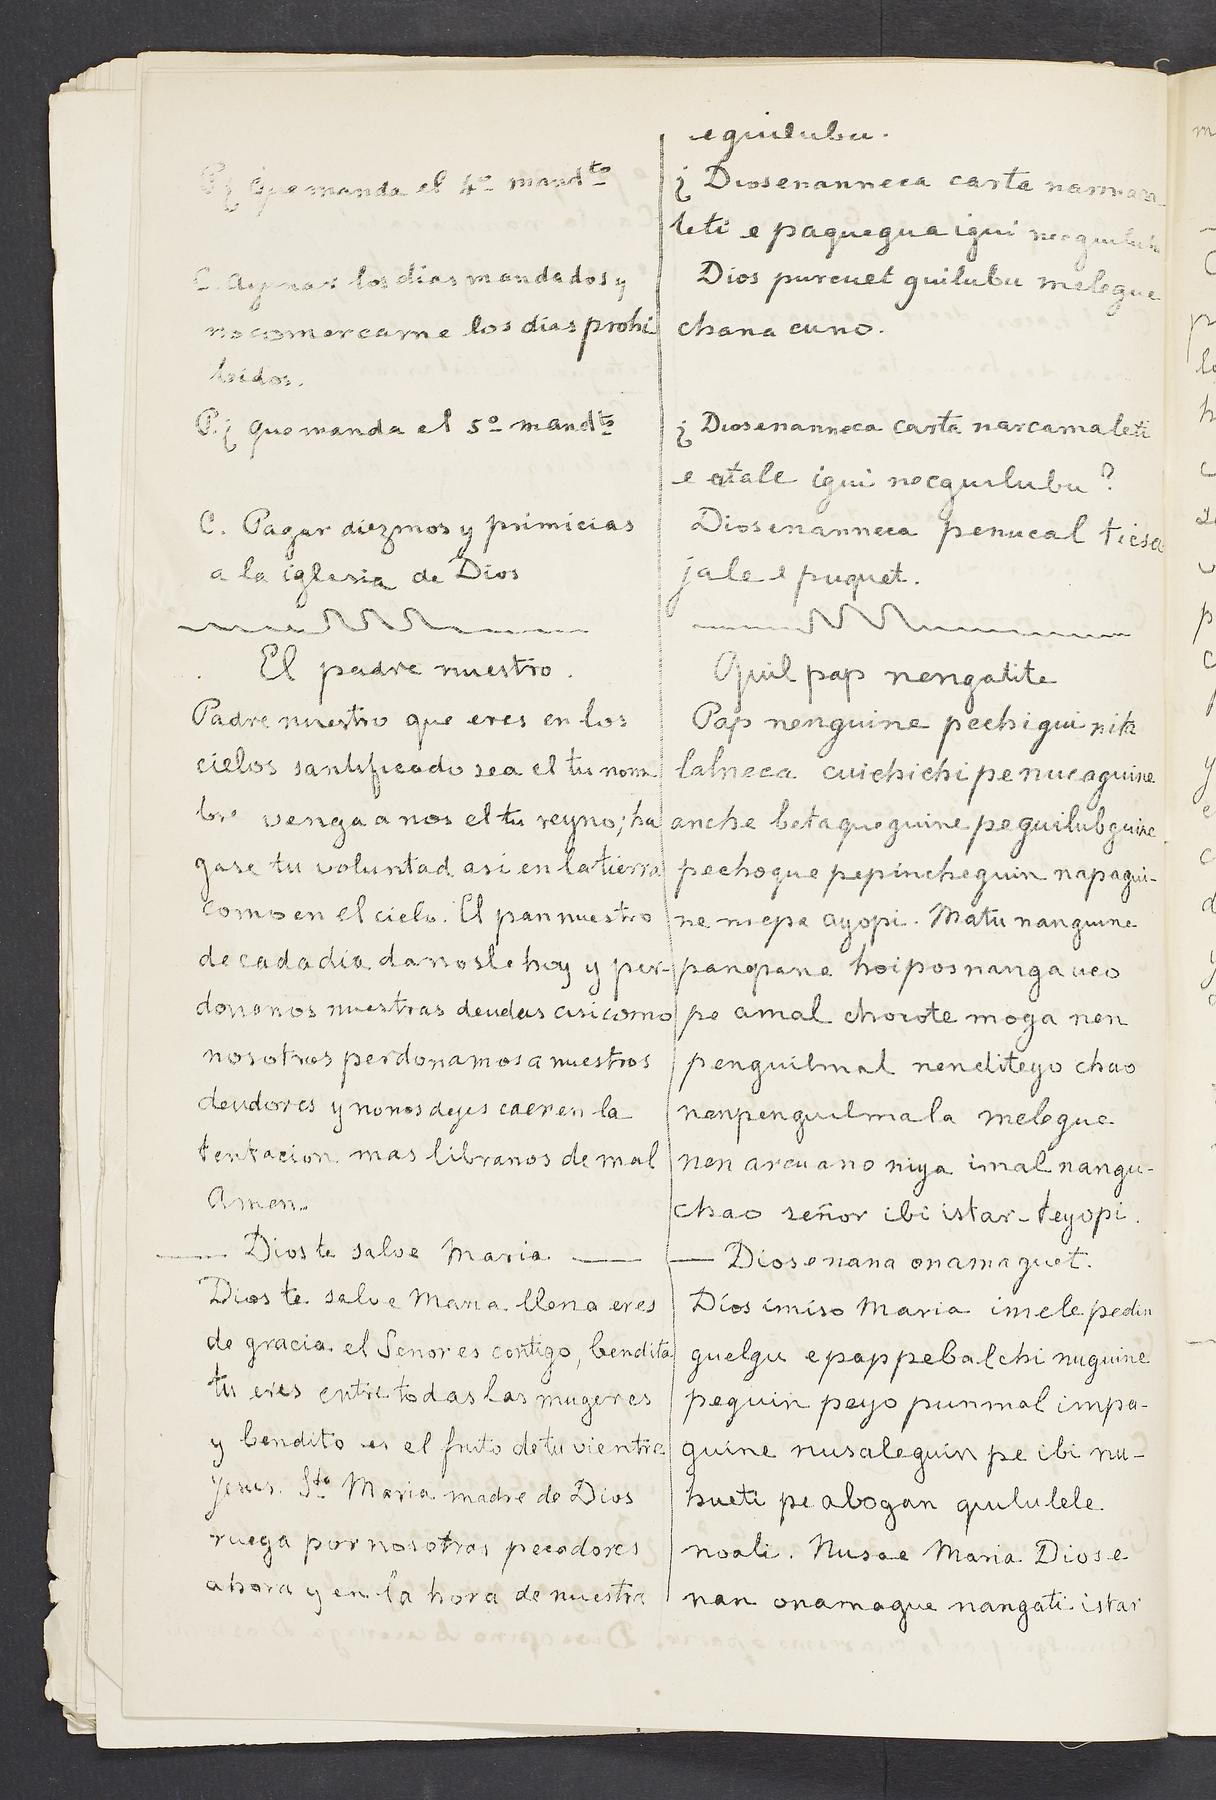 eguilubu.
P.¿ Que manda el 4º mandto
C. Ayunar los dias mandados y
no comer carne los dias prohi
bidos.
P.¿ Que manda el 5º mandto
C. Pagar diezmos y primicias
a la iglesia de Dios
El padre nuestro.
Padre nuestro que eres en los
cielos santificado sea el tu nom
bre venga a nos el tu reyno; ha
gase tu voluntad asi en la tierra
como en el cielo. El pan nuestro
de cada dia danosle hoy y per-
donanos nuestras deudas asi como
nosotros perdonamos a nuestros
deudores y no nos dejes caer en la
tentacion mas libranos de mal
Amen.
Dios te salve Maria
Dios te salve Maria llena eres
de gracia el Señor es contigo, bendita
tu eres entre todas las mugeres
y bendito es el fruto de tu vientre
Jesus. Sta Maria madre de Dios
ruega por nosotros pecadores
ahora y en la hora de nuestra
¿ Diosenanneca carta narmaca-
leti e paguegua igui
Dios purcuet guilubu melegue
chana cuno.
¿ Diosenanneca carta narcamaleti
e atale igui nocguilubu?
Diosenanneca penucal ticsa
jale e puquet.
Guil pap nengatite
Pap nenguine pechigui nite
lalneca cuichichi pe nucaguine
anche betaqueguine pe guilubguine
pechogue pepincheguin napagui-
ne nicpa ayopi. Matu nanguine
panepane hoiposnanga ueo
pe amal chocote moga nen
penguilmal nenditeyo chao
nenpenguilmala melegue
nen arcuano niya imal nangu-
chao señor ibi istar-teyopi.
Diosenana onamaguet.
Dios imiso Maria imele pedin
guelgu epappebalchi nuguine
peguin peyo punmal impa-
guine nusaleguin pe ibi nu-
hueti pe abogan quilulele
noali. Nusae Maria Diose
nan onamague nangati istar